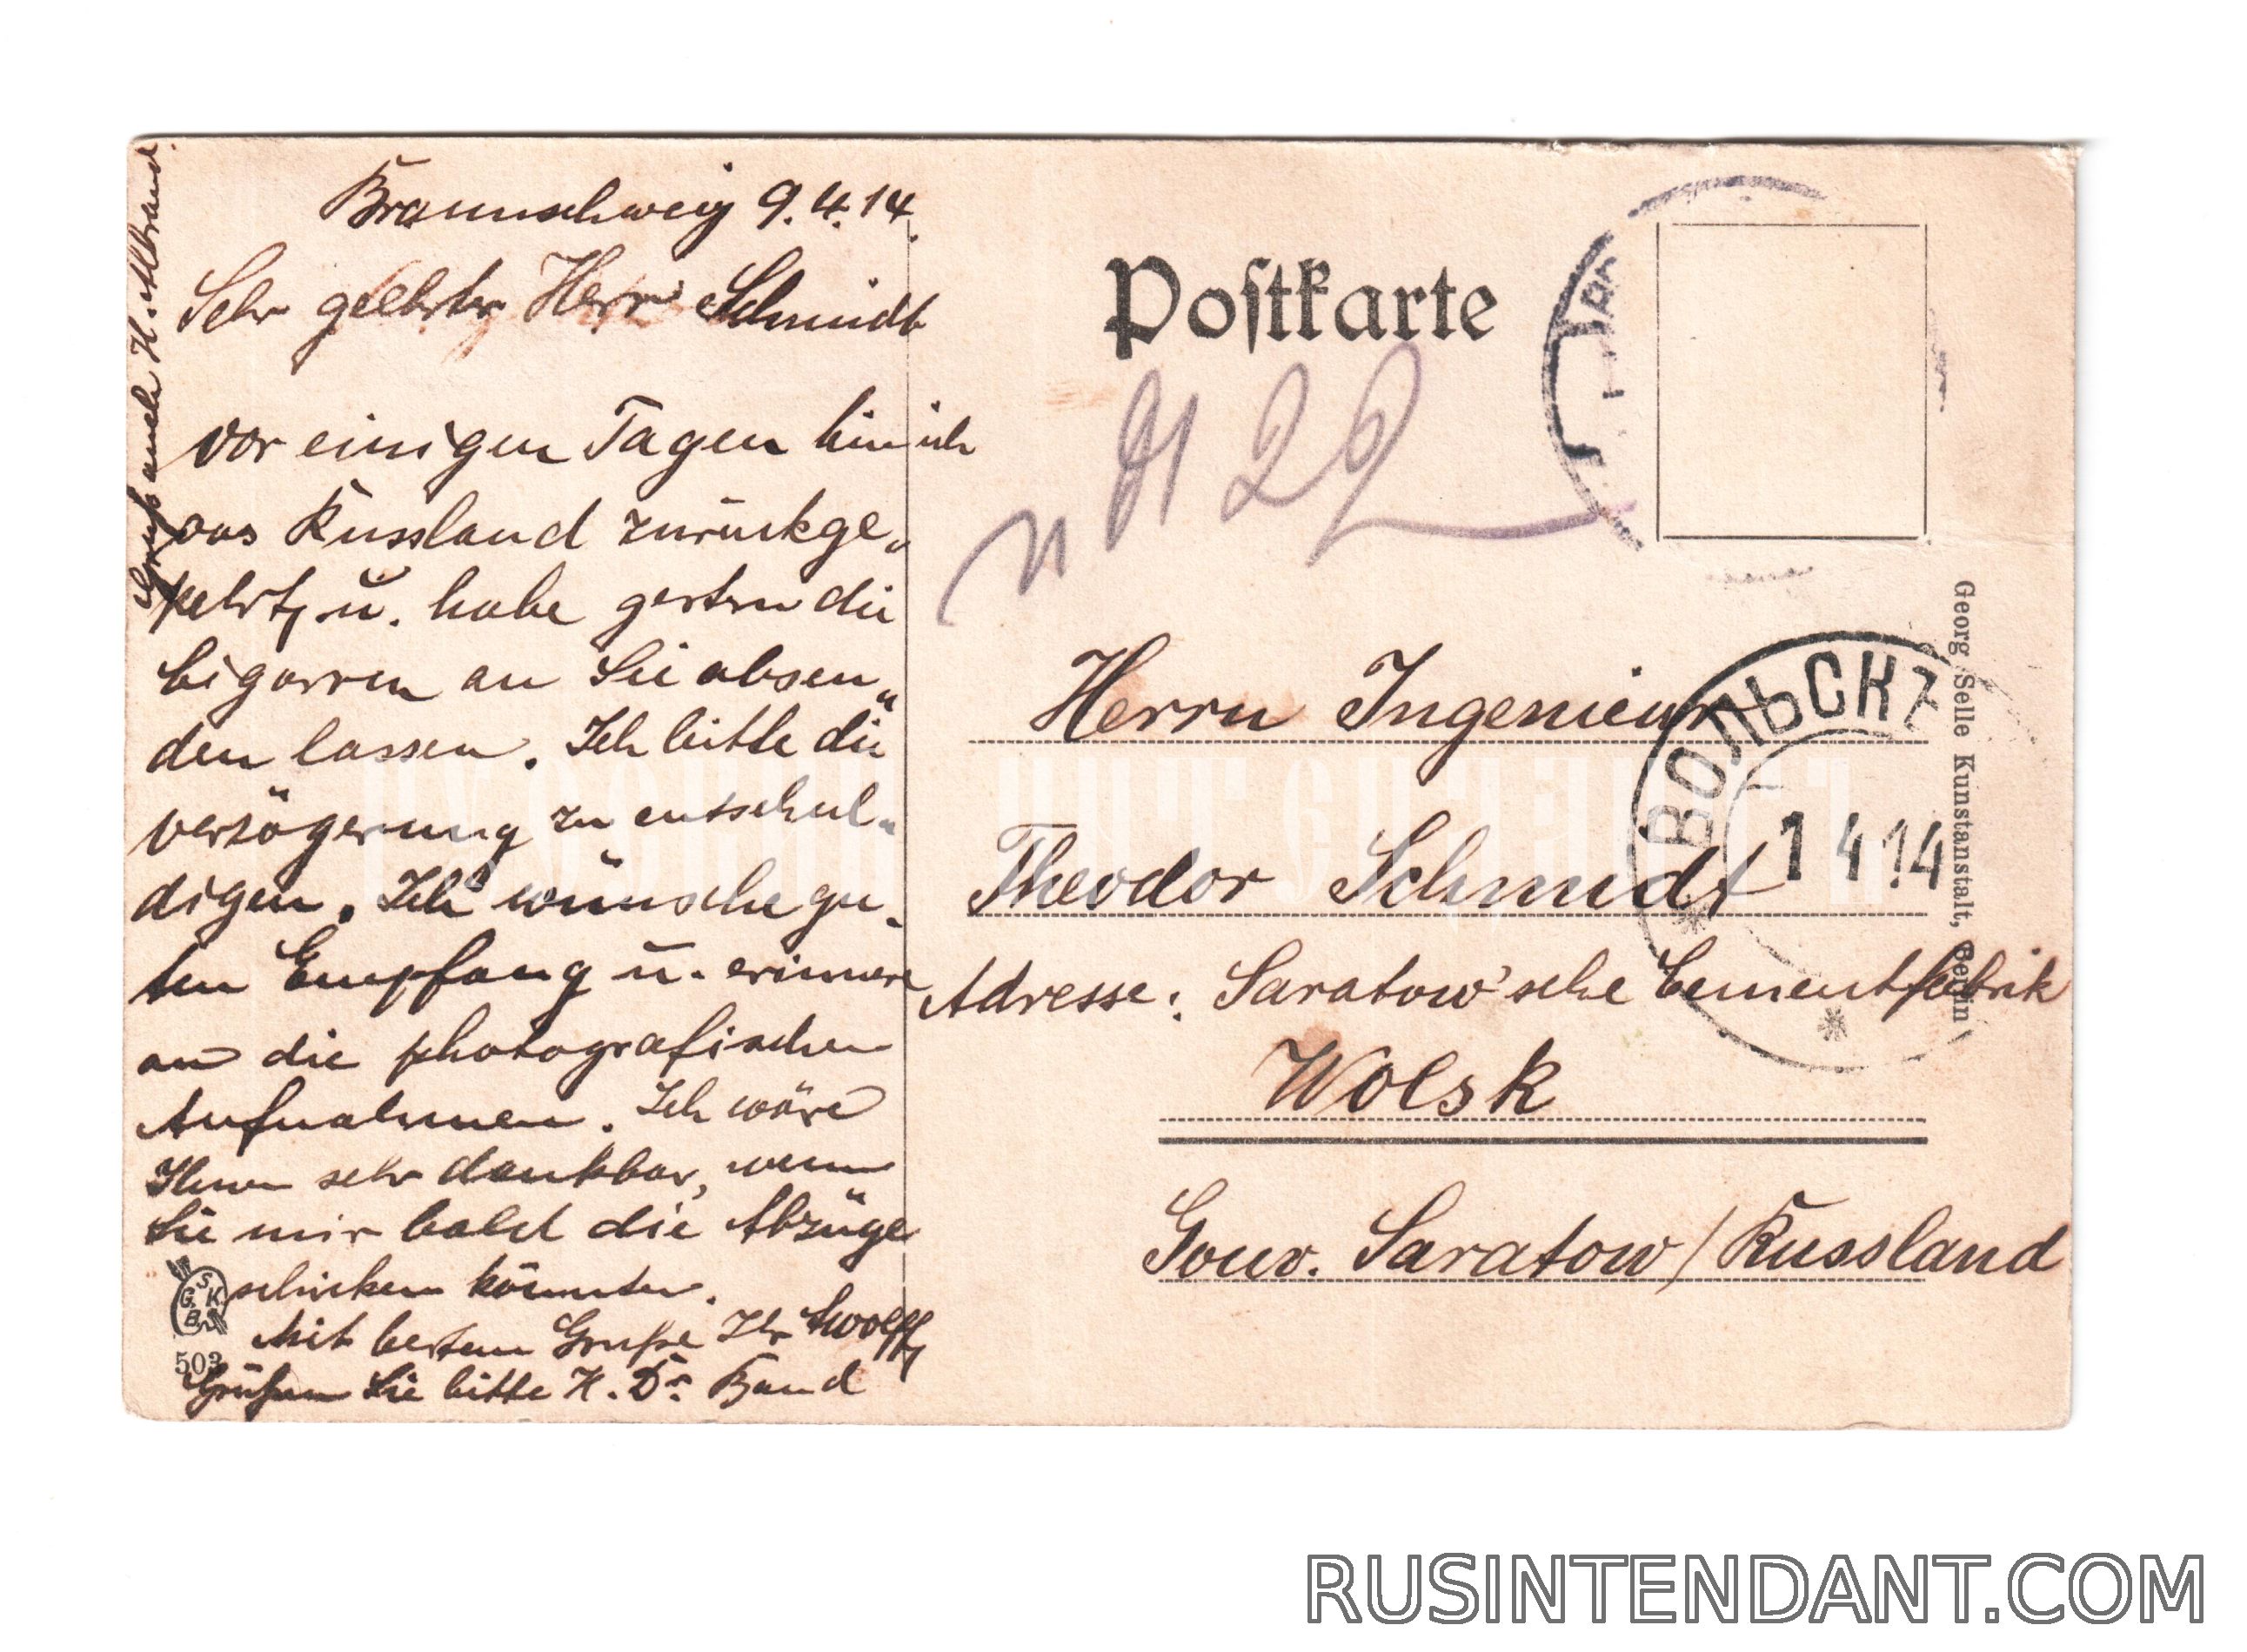 Braunschweig 9.4.14.
Sehr geehrter Herr Schmidt
vor einigen Tagen bin ich
aus Russland zurückge„
kehrt, u. habe gestern die
Cigarren an Sie absen„
den lassen. Ich bitte die
Verzögerung zu entschul„
digen. Ich wünsche gu„
ten Empfang u. erinnere
an die photografischen
Aufnahmen. Ich wäre
Ihnen sehr dankbar, wenn
Sie mir bald die Abzüge
schicken könnten.
Mit bestem Gruße Ihr AWolff
Grüßen Sie bitte H. Dr. Band
Gruß auch H.
G. S. K. B.
503
Postkarte
22
Herrn Ingenieur
Theodor Schmidt
Adresse: Saratow'sche Cementfabrik
Wolsk
Gouv. Saratow/Russland
ВОЛЬСКЪ
1 4 14
Georg Selle Kunstanstalt, Berlin
RUSINTENDANT.COM